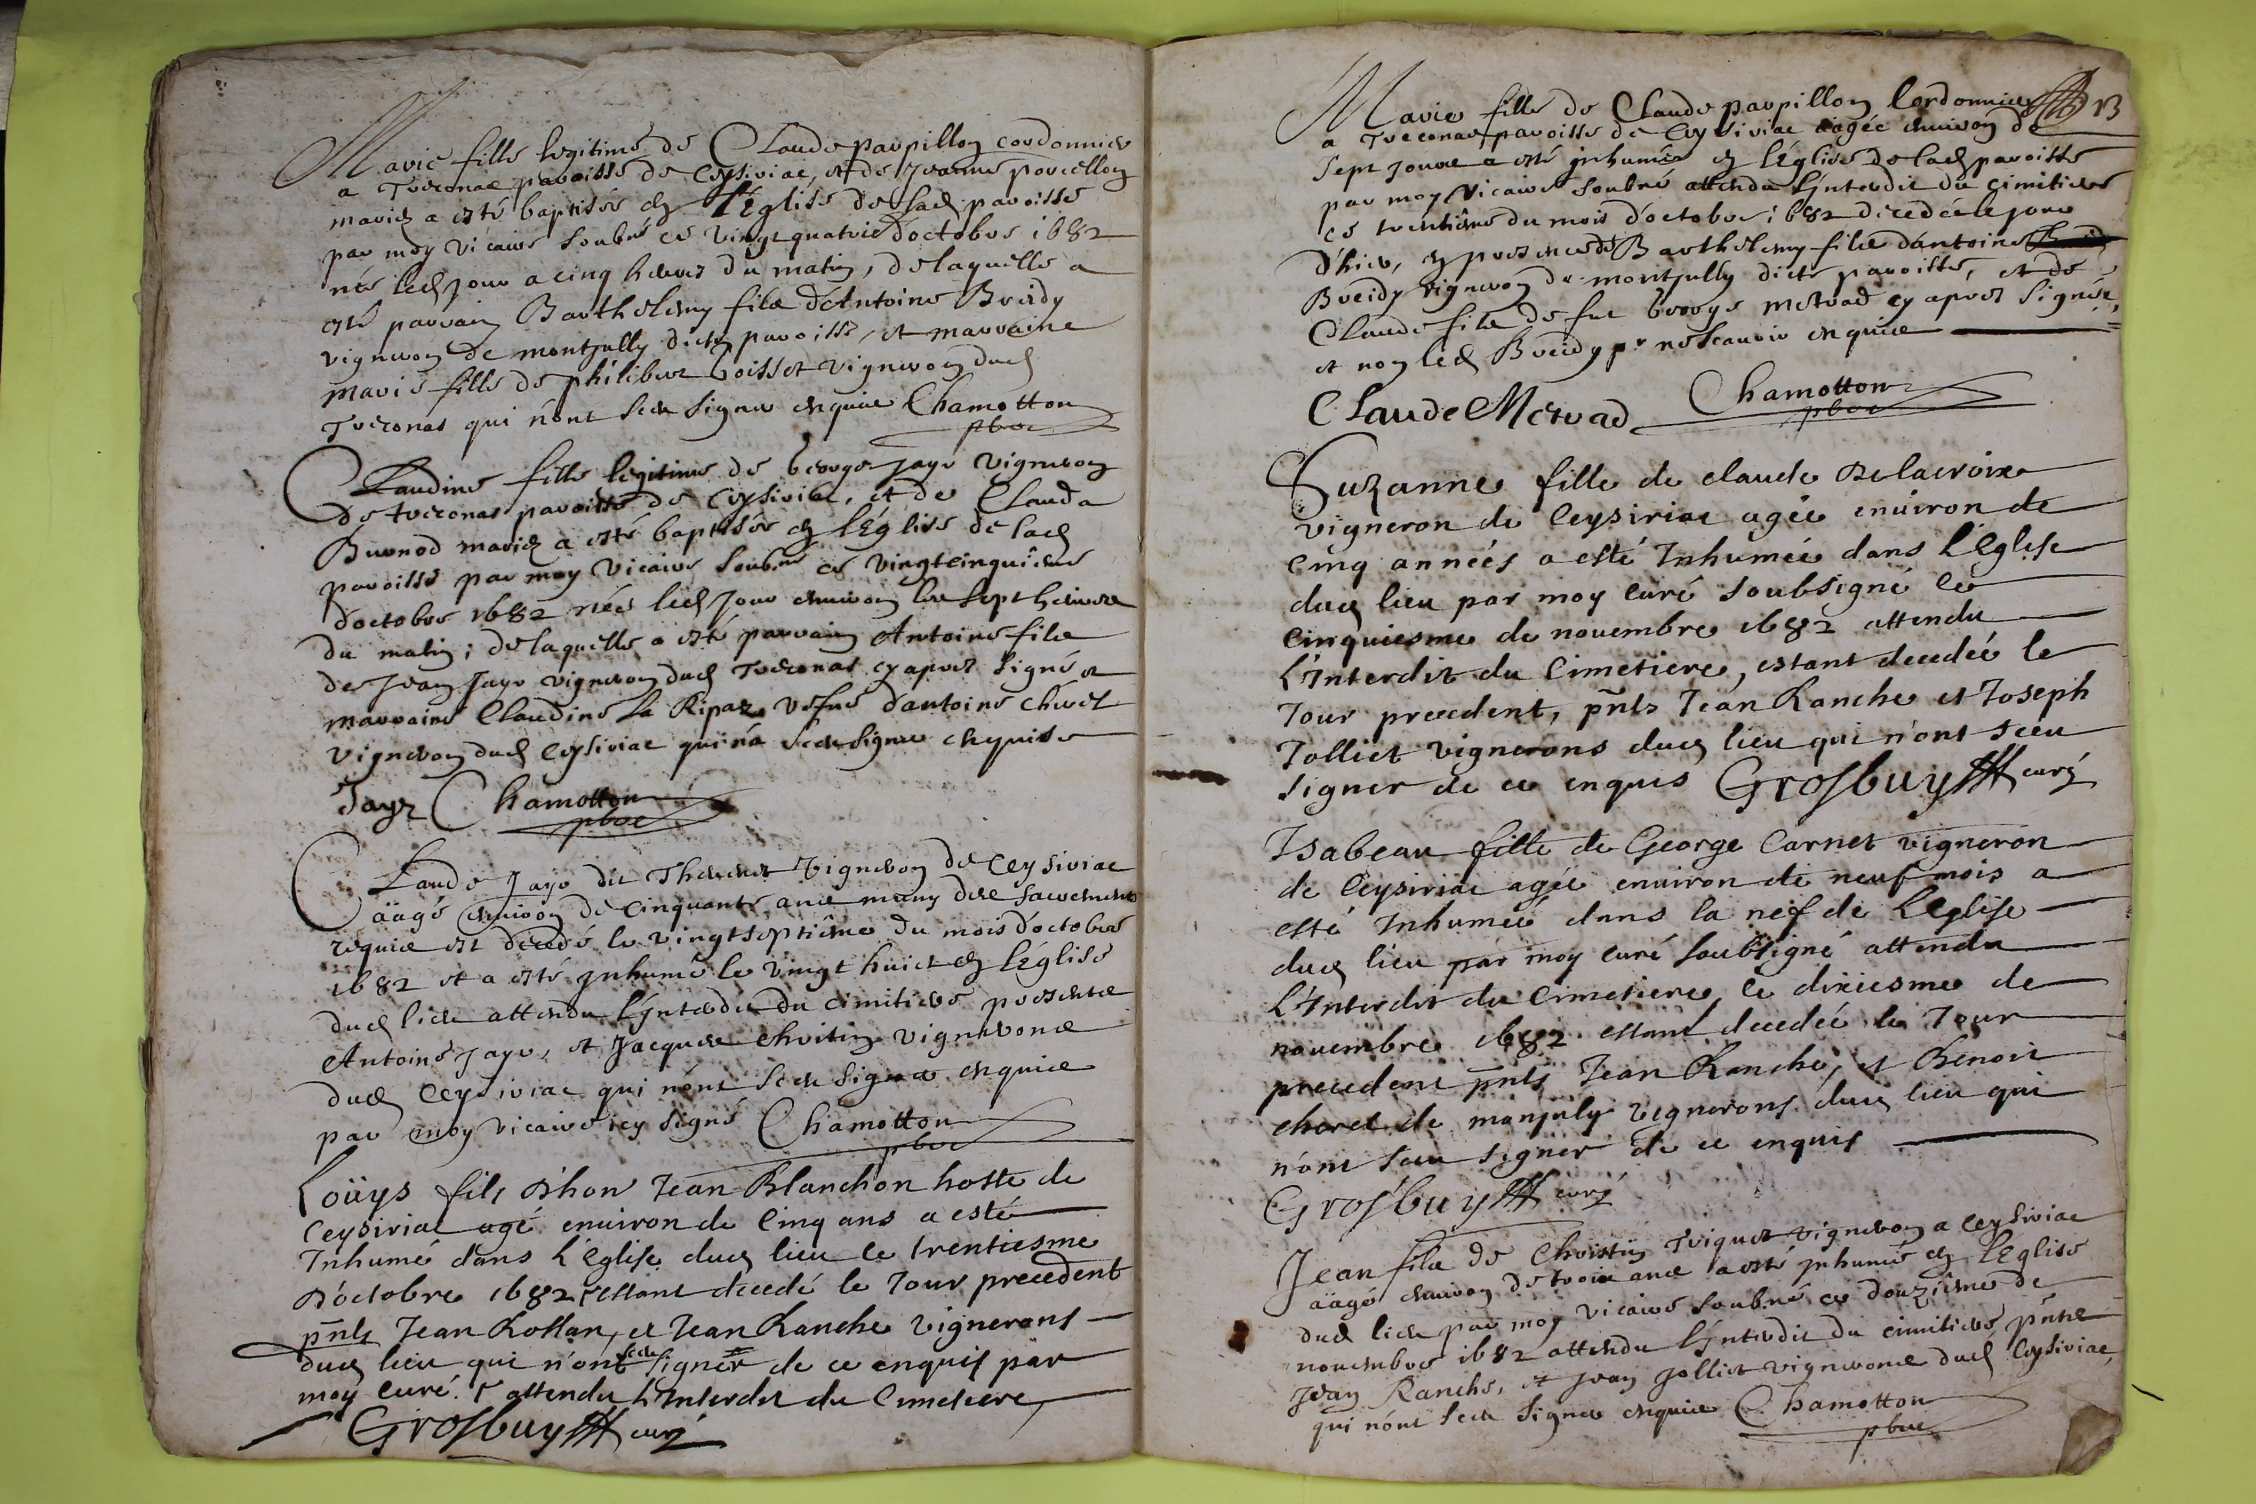 Marie fille legitime de Claude parpillon cordonnier
a Treconas paroisse de Ceysiriac, et de Jeanne porcellon
mariez a esté baptisée en l'Église de lad paroisse
par moy vicaire soubné ce vingt quatrie d'octobre 1682
née led jour a cinq heures du matin, de laquelle a
esté parrain Barthelemy fils d'Antoine Breidy
vigneron de montjully dicte paroisse, et marraine
marie fille de philibert boisset vigneron dud
Treconas qui n'ont sceu signer enquis Chamotton
pbre
Claudine fille legitime de George Jayr vigneron
de treconas paroisse de Ceysiriac, et de Clauda
Burnod mariez a esté baptisée en l'Église de lad
paroisse par moy vicaire soubné ce vingtcinquiême
d'octobre 1682 née led jour environ les sept heures
du matin; de laquelle a esté parrain Antoine fils
de Jean Jayr vigneron dud Treconas cy apres signé et
marraine Claudine la Ripaz vefve d'antoine chevet
vigneron dud Ceysiriac qui n'a sceu signer enquise
Jayr Chamotton
pbre
Claude Jayr dit Thevenet vigneron de Ceysiriac
äagé environ de cinquante ans muny des sacrements
requis est decedé le vingtseptiême du mois d'octobre
1682 et a esté inhumé le vingt huict en l'Église
dud lieu attendu l'interdit du cimitiere presents
Antoine Jayr, et Jacques Christin vignerons
dud Ceysiriac qui n'ont sceu signer enquis
par moy vicaire icy signé Chamotton
pbre
Loüys fils d'hon Jean Blanchon hoste de
Ceysiriac agé environ de cinq ans a esté
Inhumé dans l'Eglise dud lieu ce trentiesme
d'octobre 1682 estant decedé le Jour precedent
pnts Jean Rollan, et Jean Ranche vignerons
dud lieu qui n'ont sceu signer de ce enquis par
moy curé. attendu l'Interdit du Cimetiere
Grosbuy curé
13
Marie fille de Claude parpillon Cordonnier
a Treconas paroisse de Ceysiriac äagée environ de
sept jours a esté inhumée en l'Église de lad paroisse
par moy vicaire soubné attendu l'interdit du cimitiere
ce trentiême du mois d'octobre 1682 decedée le jour
d'hier, en presence de Barthelemy fils d'antoine
Breidy vigneron de montjully dicte paroisse, et de
Claude fils de feu George Metrad cy apres signé,
et non led Breidy pr ne scavoir enquis
Claude Metrad Chamotton
pbre
Suzanne fille de claude Delacroix
vigneron de Ceysiriac agée environ de
cinq années a esté Inhumée dans l'Eglise
dud lieu par moy curé soubsigné ce
cinquiesme de novembre 1682 attendu
l'Interdit du Cimetiere, estant decedée le
Jour precedent, pnts Jean Ranche et Joseph
Jolliet vignerons dud lieu qui n'ont sceu
signer de ce enquis Grosbuy curé
Isabeau fille de George Carnet vigneron
de Ceysiriac agée environ de neuf mois a
esté Inhumée dans la nef de l'Eglise
dud lieu par moy curé soubsigné attendu
l'Interdit du Cimetiere ce dixiesme de
novembre 1682 estant decedée le Jour
precedent pnts Jean Ranche, et Benoit
cheret de monjuly vignerons dud lieu qui
n'ont sceu signer de ce enquis
Grosbuy curé
Jean fils de Christin Triquet vigneron a Ceysiriac
äagé environ de trois ans a esté inhumé en l'Église
dud lieu par moy vicaire soubné ce douziême de
novembre 1682 attendu l'interdit du cimitiere pnts
Jean Ranche, et Jean Jolliet vignerons dud Ceysiriac,
qui n'ont sceu signer enquis Chamotton
pbre